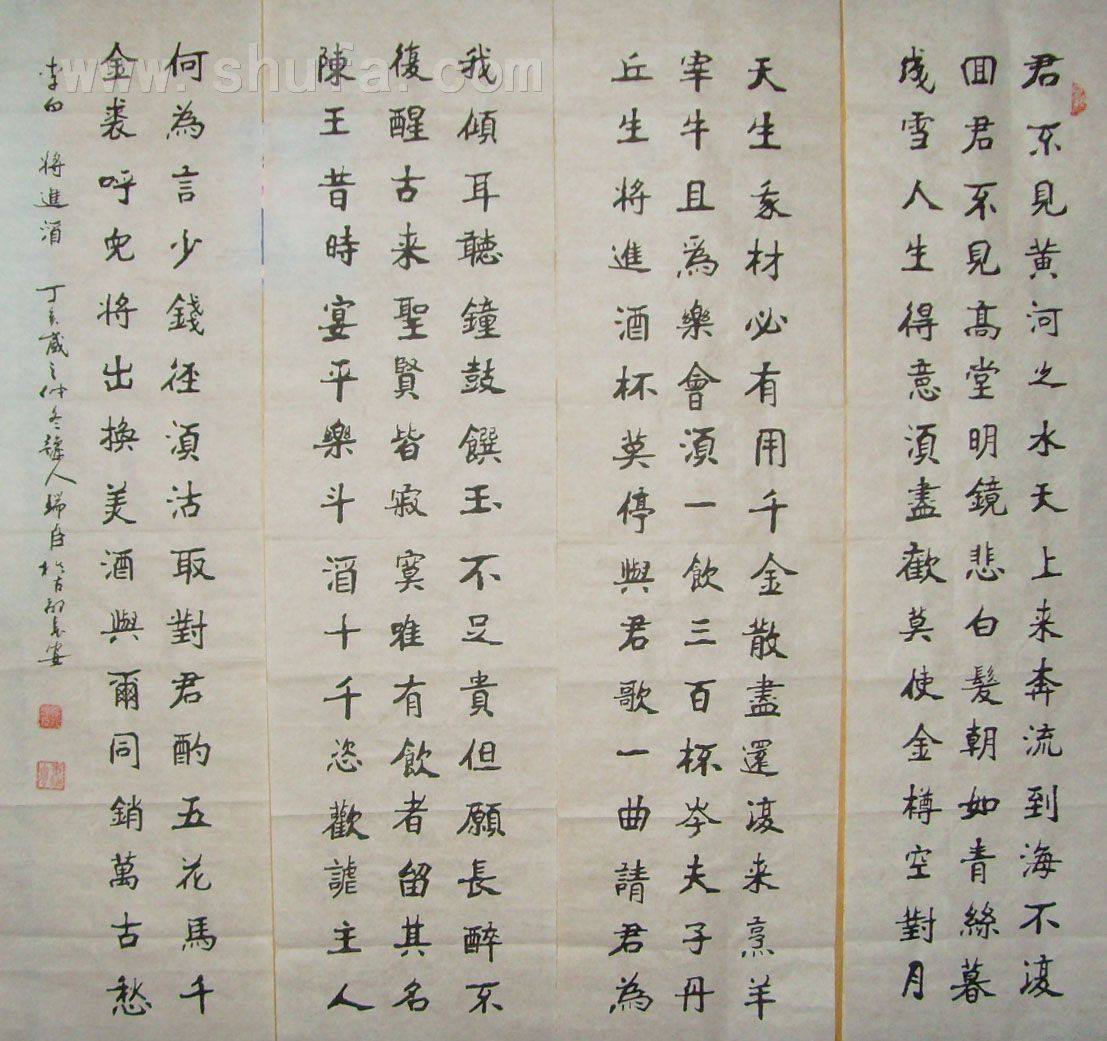 www.shufa.com
君不見黄河之水天上来奔流到海不復
回君不見高堂明鏡悲白髮朝如青絲暮
成雪人生得意須盡歡莫使金樽空對月
天生我材必有用千金散盡還復来烹羊
宰牛且爲樂會須一飲三百杯岑夫子丹
丘生将進酒杯莫停與君歌一曲請君為
我傾耳聽鐘鼓饌玉不足貴但願長醉不
復醒古来聖賢皆寂寞唯有飲者留其名
陳王昔時宴平樂斗酒十千恣歡謔主人
何為言少錢徑須沽取對君酌五花馬千
金裘呼兒将出換美酒與爾同銷萬古愁
李白 将進酒 丁亥歲之仲冬人瑞臣於古都長安